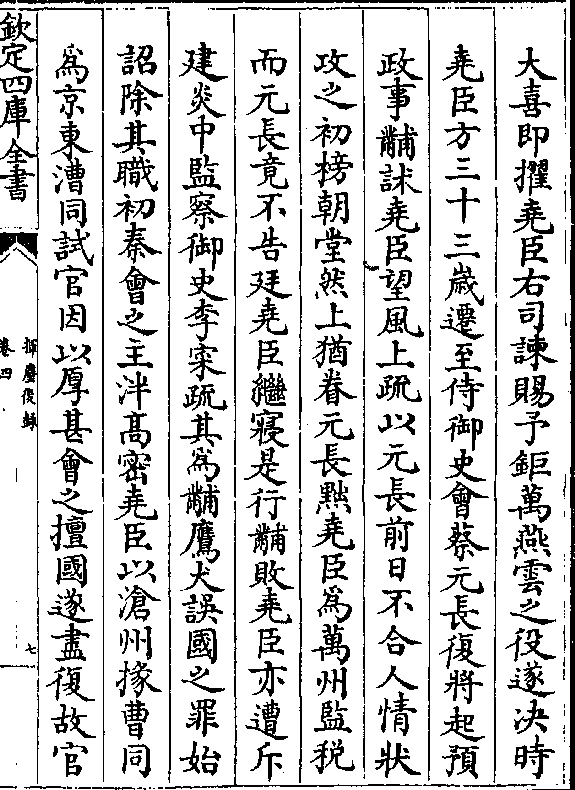 大喜即擢堯臣右司諫賜予鉅萬燕雲之役遂決時
堯臣方三十三歳遷至侍御史會蔡元長復將起預
政事黼訹堯臣望風上疏以元長前日不合人情狀
攻之初榜朝堂然上猶眷元長黜堯臣為萬州監税
而元長竟不告廷堯臣繼寢是行黼敗堯臣亦遭斥
建炎中監察御史李寀疏其為黼鷹犬誤國之罪始
詔除其職初秦會之主泮髙密堯臣以滄州掾曹同
為京東漕同試官因以厚甚會之擅國遂盡復故官
欽定四庫全書
揮麈後録
卷四
七